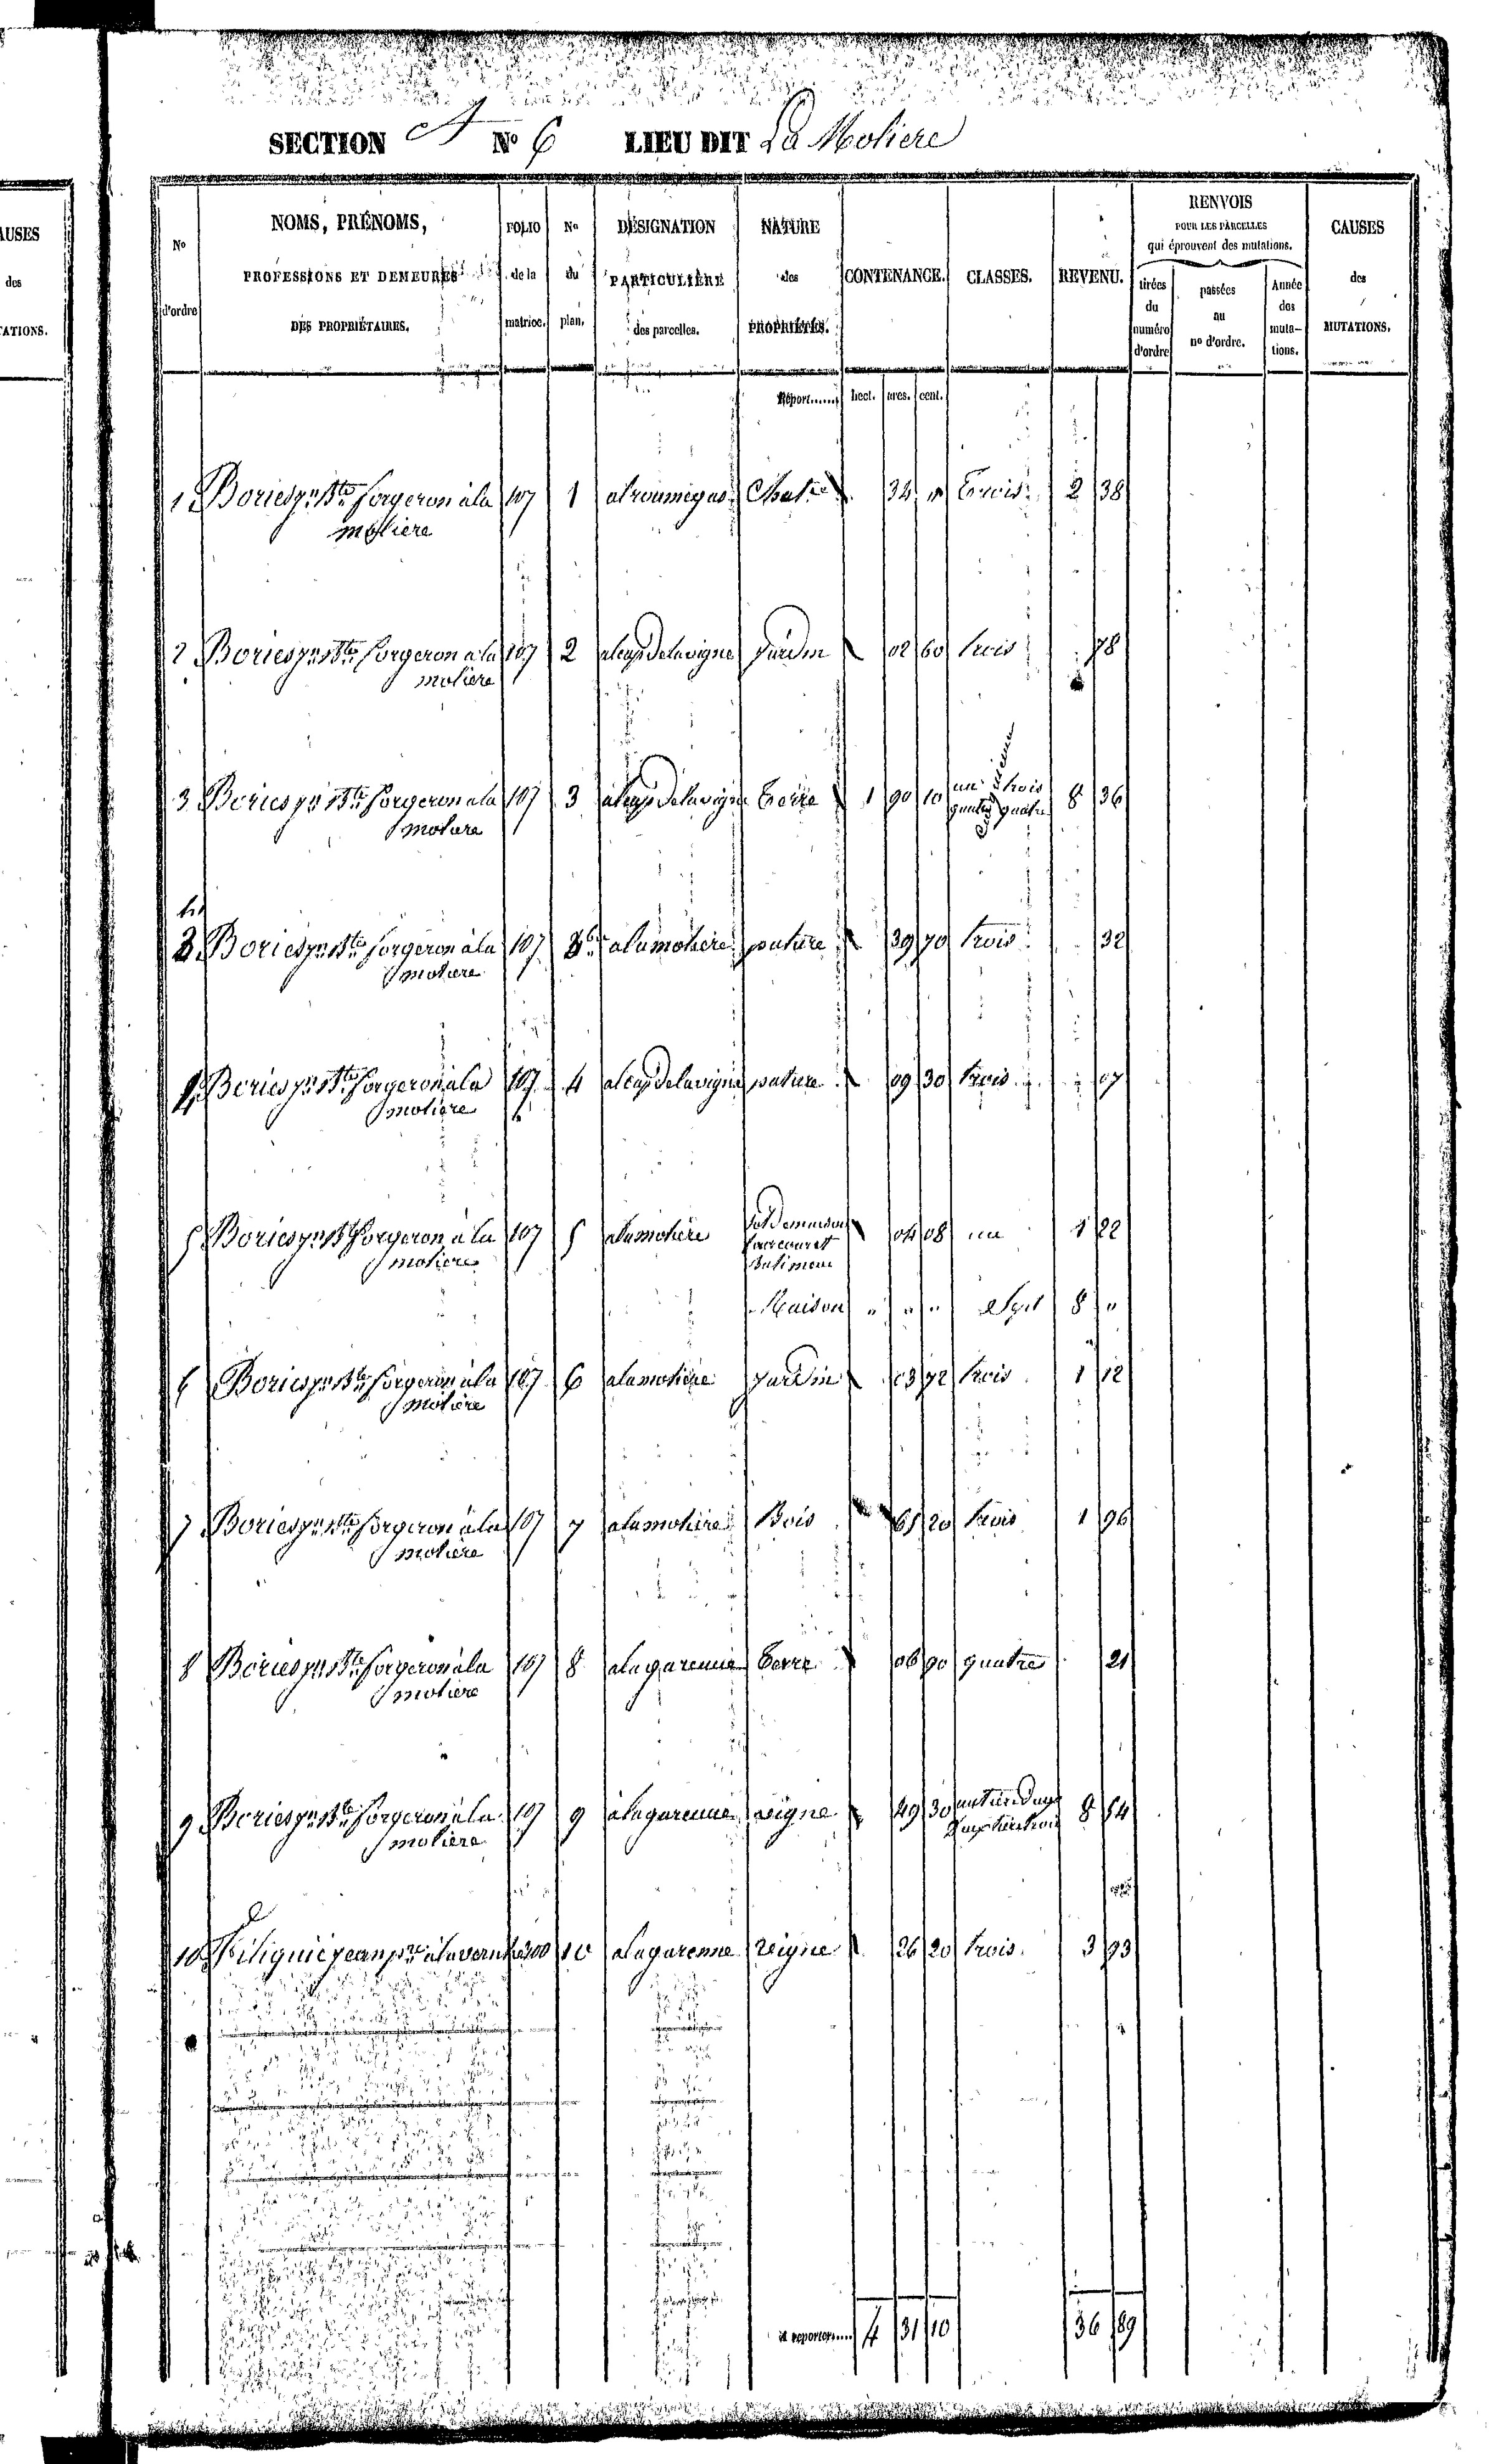 SECTION A N° 6 LIEU DIT La Moliere
AUSES
des
TATIONS.
N°
d'ordre
NOMS, PRÉNOMS,
PROFESSIONS ET DEMEURES
DES PROPRIÉTAIRES.
FOLIO
de la
matrice.
N°
du
plan.
DÉSIGNATION
PARTICULIÈRE
des parcelles.
NATURE
des
PROPRIÉTÉS.
CONTENANCE.
CLASSES.
REVENU.
RENVOIS
POUR LES PARCELLES
qui éprouvent des mutations.
tirées
du
numéro
d'ordre
passées
au
no d'ordre.
Année
des
muta-
tions.
CAUSES
des
MUTATIONS.
Report...... hect. ares. cent.
1 Bories forgeron à la 107 1 34 " trois 2 38
moliere
2 Bories forgeron a la 107 2 al cap de la vigne jardin 02 60 trois 78
moliere
3 Bories forgeron a la 107 3 al cap de la vigne terre 1 90 10 un trois 8 36
moliere
bis
3 Bories forgeron à la 107 3 b a la moliere pature 39 70 trois 32
moliere
4 Bories forgeron a la 107 4 al cap de la vigne pature 09 30 trois 07
moliere
5 Bories forgeron à la 107 5 a la moliere sol de maison 04 08 un 1 22
moliere Batiment
Maison " " " Sept 8 "
6 Bories forgeron a la 107 6 a la moliere jardin 03 72 trois 1 12
moliere
7 Bories forgeron a la 107 7 a la moliere Bois 65 20 trois 1 96
moliere
8 Bories forgeron a la 107 8 a la garenne terre 06 90 quatre 21
moliere
9 Bories forgeron a la 107 9 a la garenne vigne 49 30 8 54
moliere
10 jean a la 200 10 a la garenne vigne 26 20 trois 3 93
A reporter..... 4 31 10 36 89